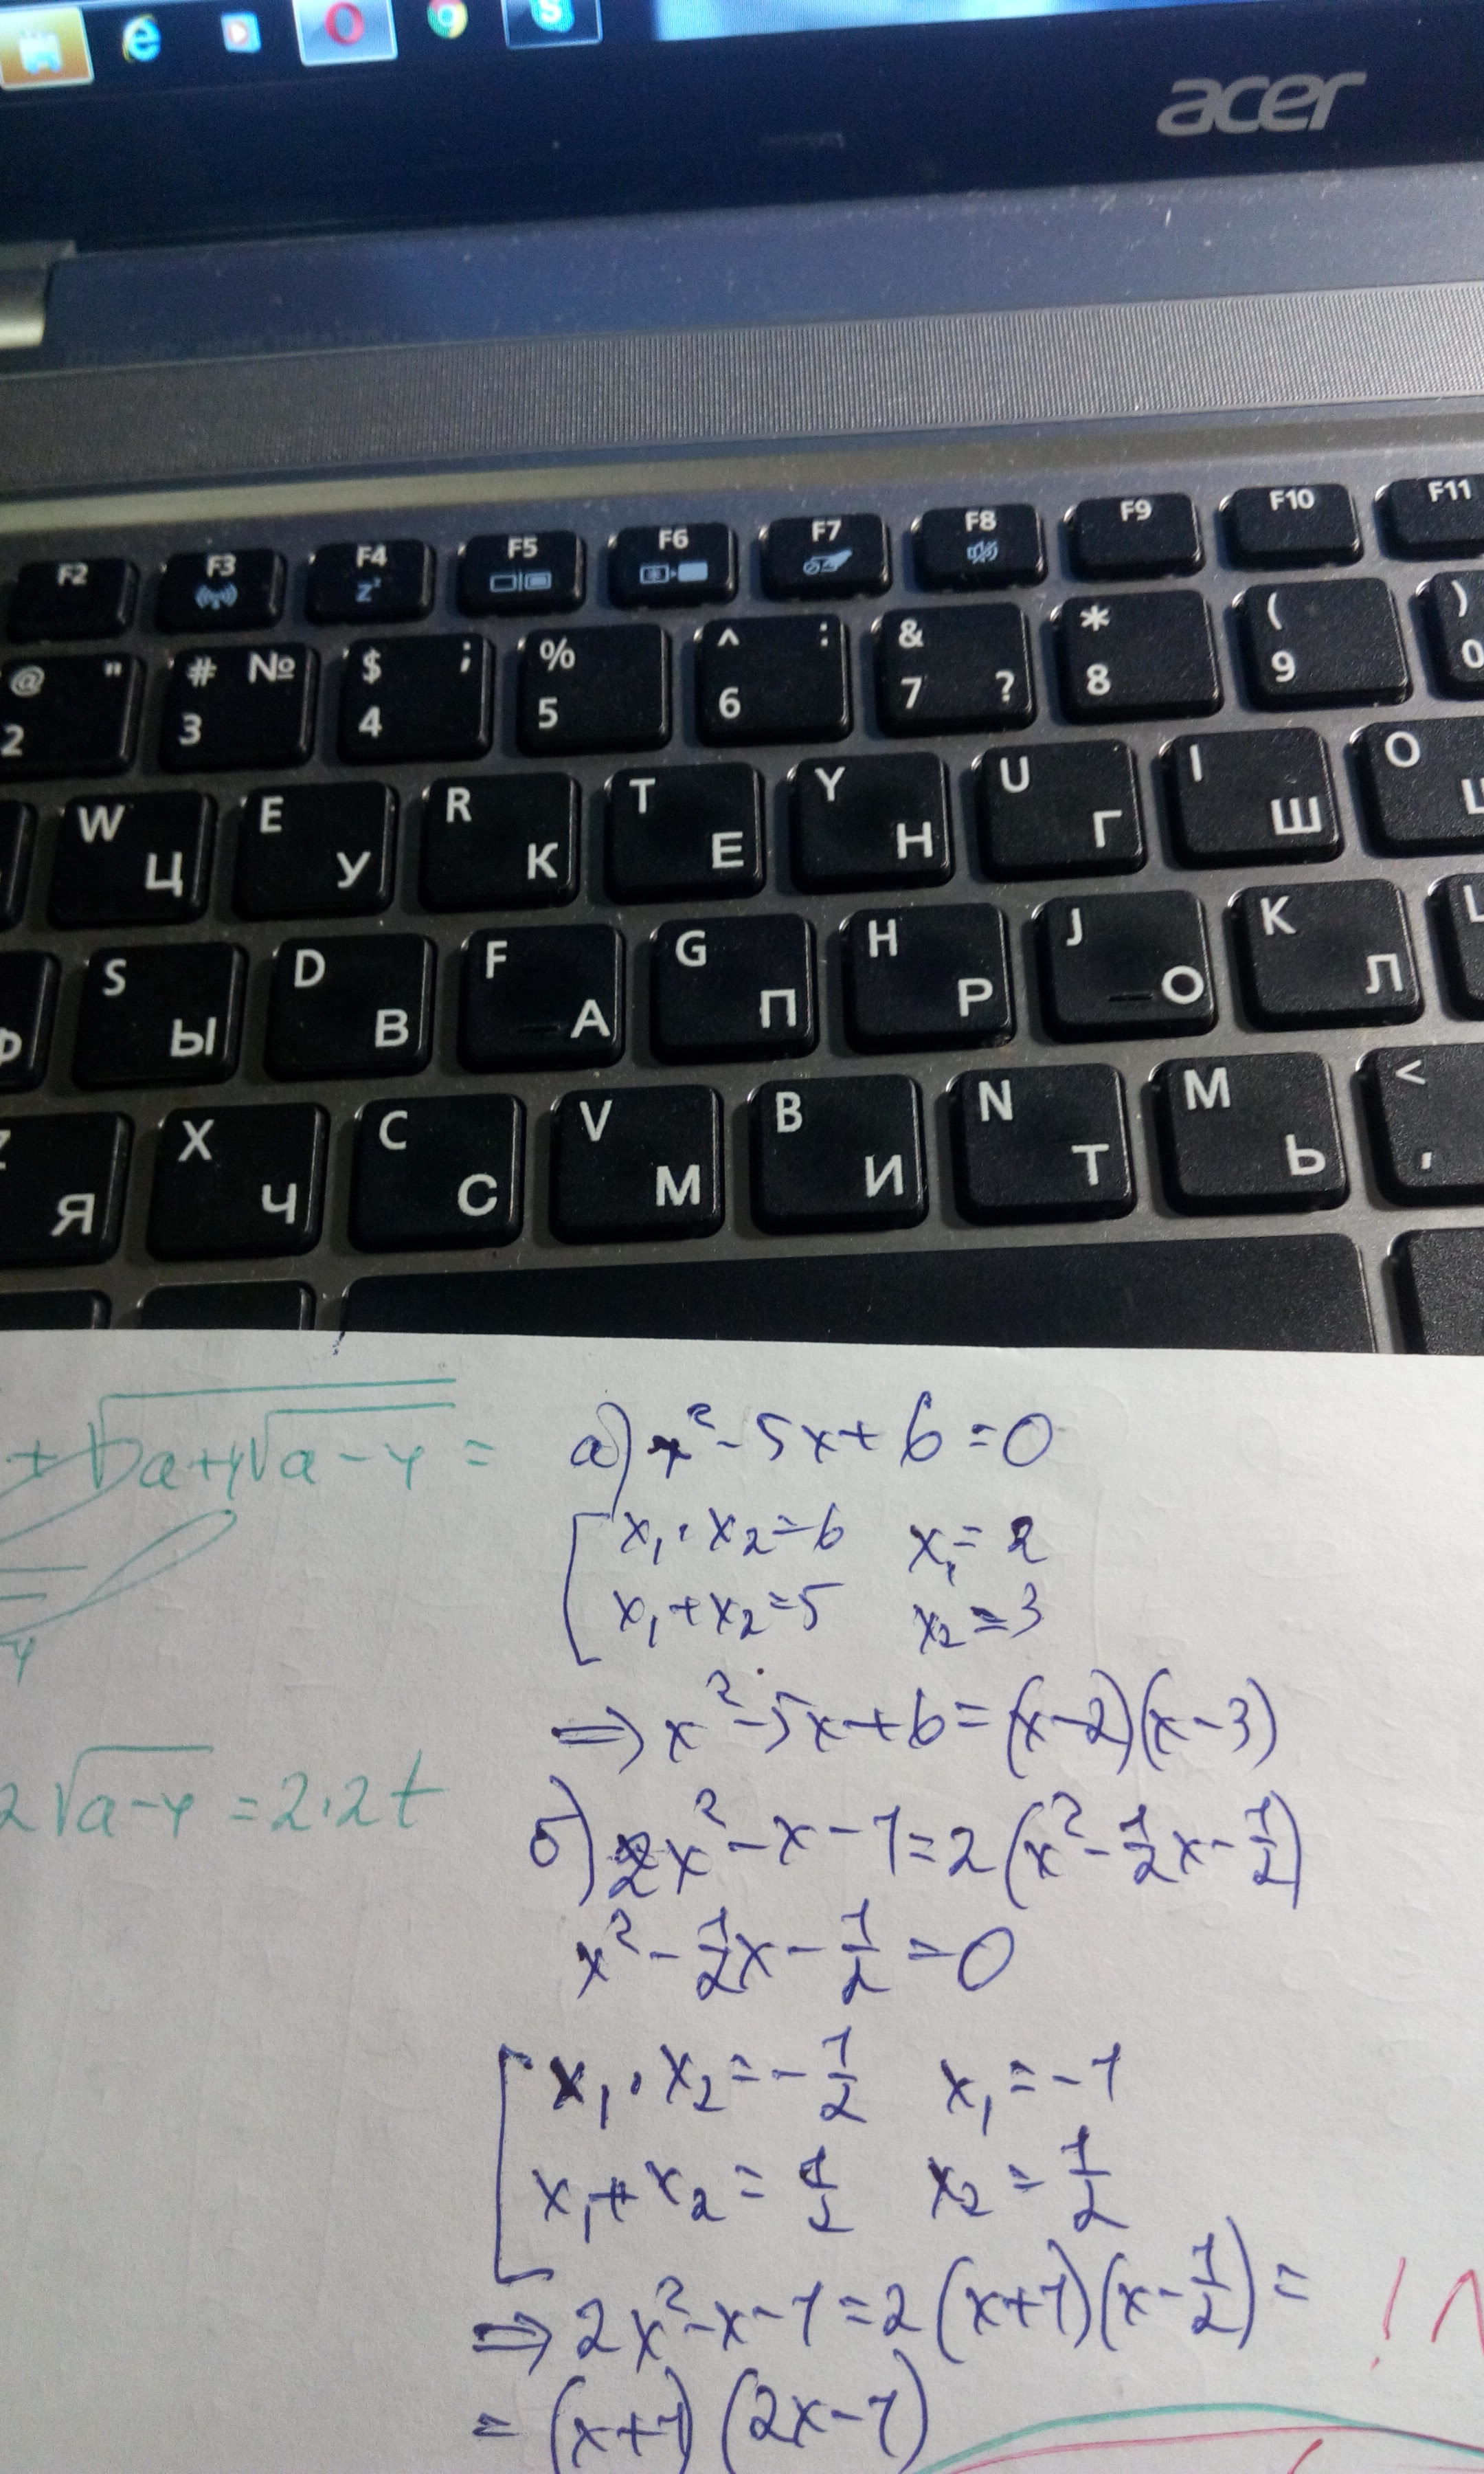 acer
F2 F3 F4 F5 F6 F7 F8 F9 F10 F11
@ " # № $ ; % ^ : & ? * ( )
2 3 4 5 6 7 8 9 0
W Ц E У R К T Е Y Н U Г I Ш O
Ф S Ы D В F А G П H Р J О K Л L
Z Я X Ч C С V М B И N Т M Ь < ,
+ √a+4√a-4 =
а) x²-5x+6=0
x₁·x₂=6 x₁=2
x₁+x₂=5 x₂=3
⇒ x²-5x+6=(x-2)(x-3)
2√a-4 =2·2t
б) 2x²-x-1=2(x²-1/2x-1/2)
x²-1/2x-1/2=0
x₁·x₂=-1/2 x₁=-1
x₁+x₂=1/2 x₂=1/2
⇒ 2x²-x-1=2(x+1)(x-1/2)=
=(x+1)(2x-1)